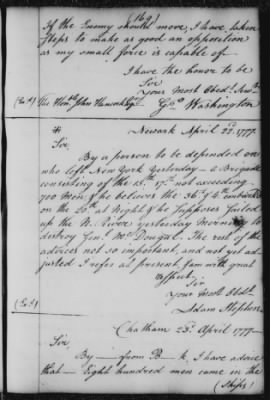 (169)
If the Enemy should move, I have taken
steps to make as good an opposition
as my small force is capable of.
I have the honor to be
Sir
Your Most Obedt. Servt.
Go Washington
The Honble John Hancock Esqr.
Newark April 22. 1777.
Sir,
By a person to be depended on
who left New York Yesterday – a Brigade
consisting of the 15. 17th not exceeding
700 Men, & he believes the 36. & 4. embarked
on the 20th at Night & he supposes sailed
up the N. River yesterday Morning to
destroy Genl. McDougal. The rest of the
advices not so important, and not yet ad-
justed I refer at present, I am with great
respect
Sir
Your Most Obdt.
Adam Stephen
Chatham 23d. April 1777–
Sir
By — from B — k, I have advice
that — Eight hundred men came in the
(Ships)